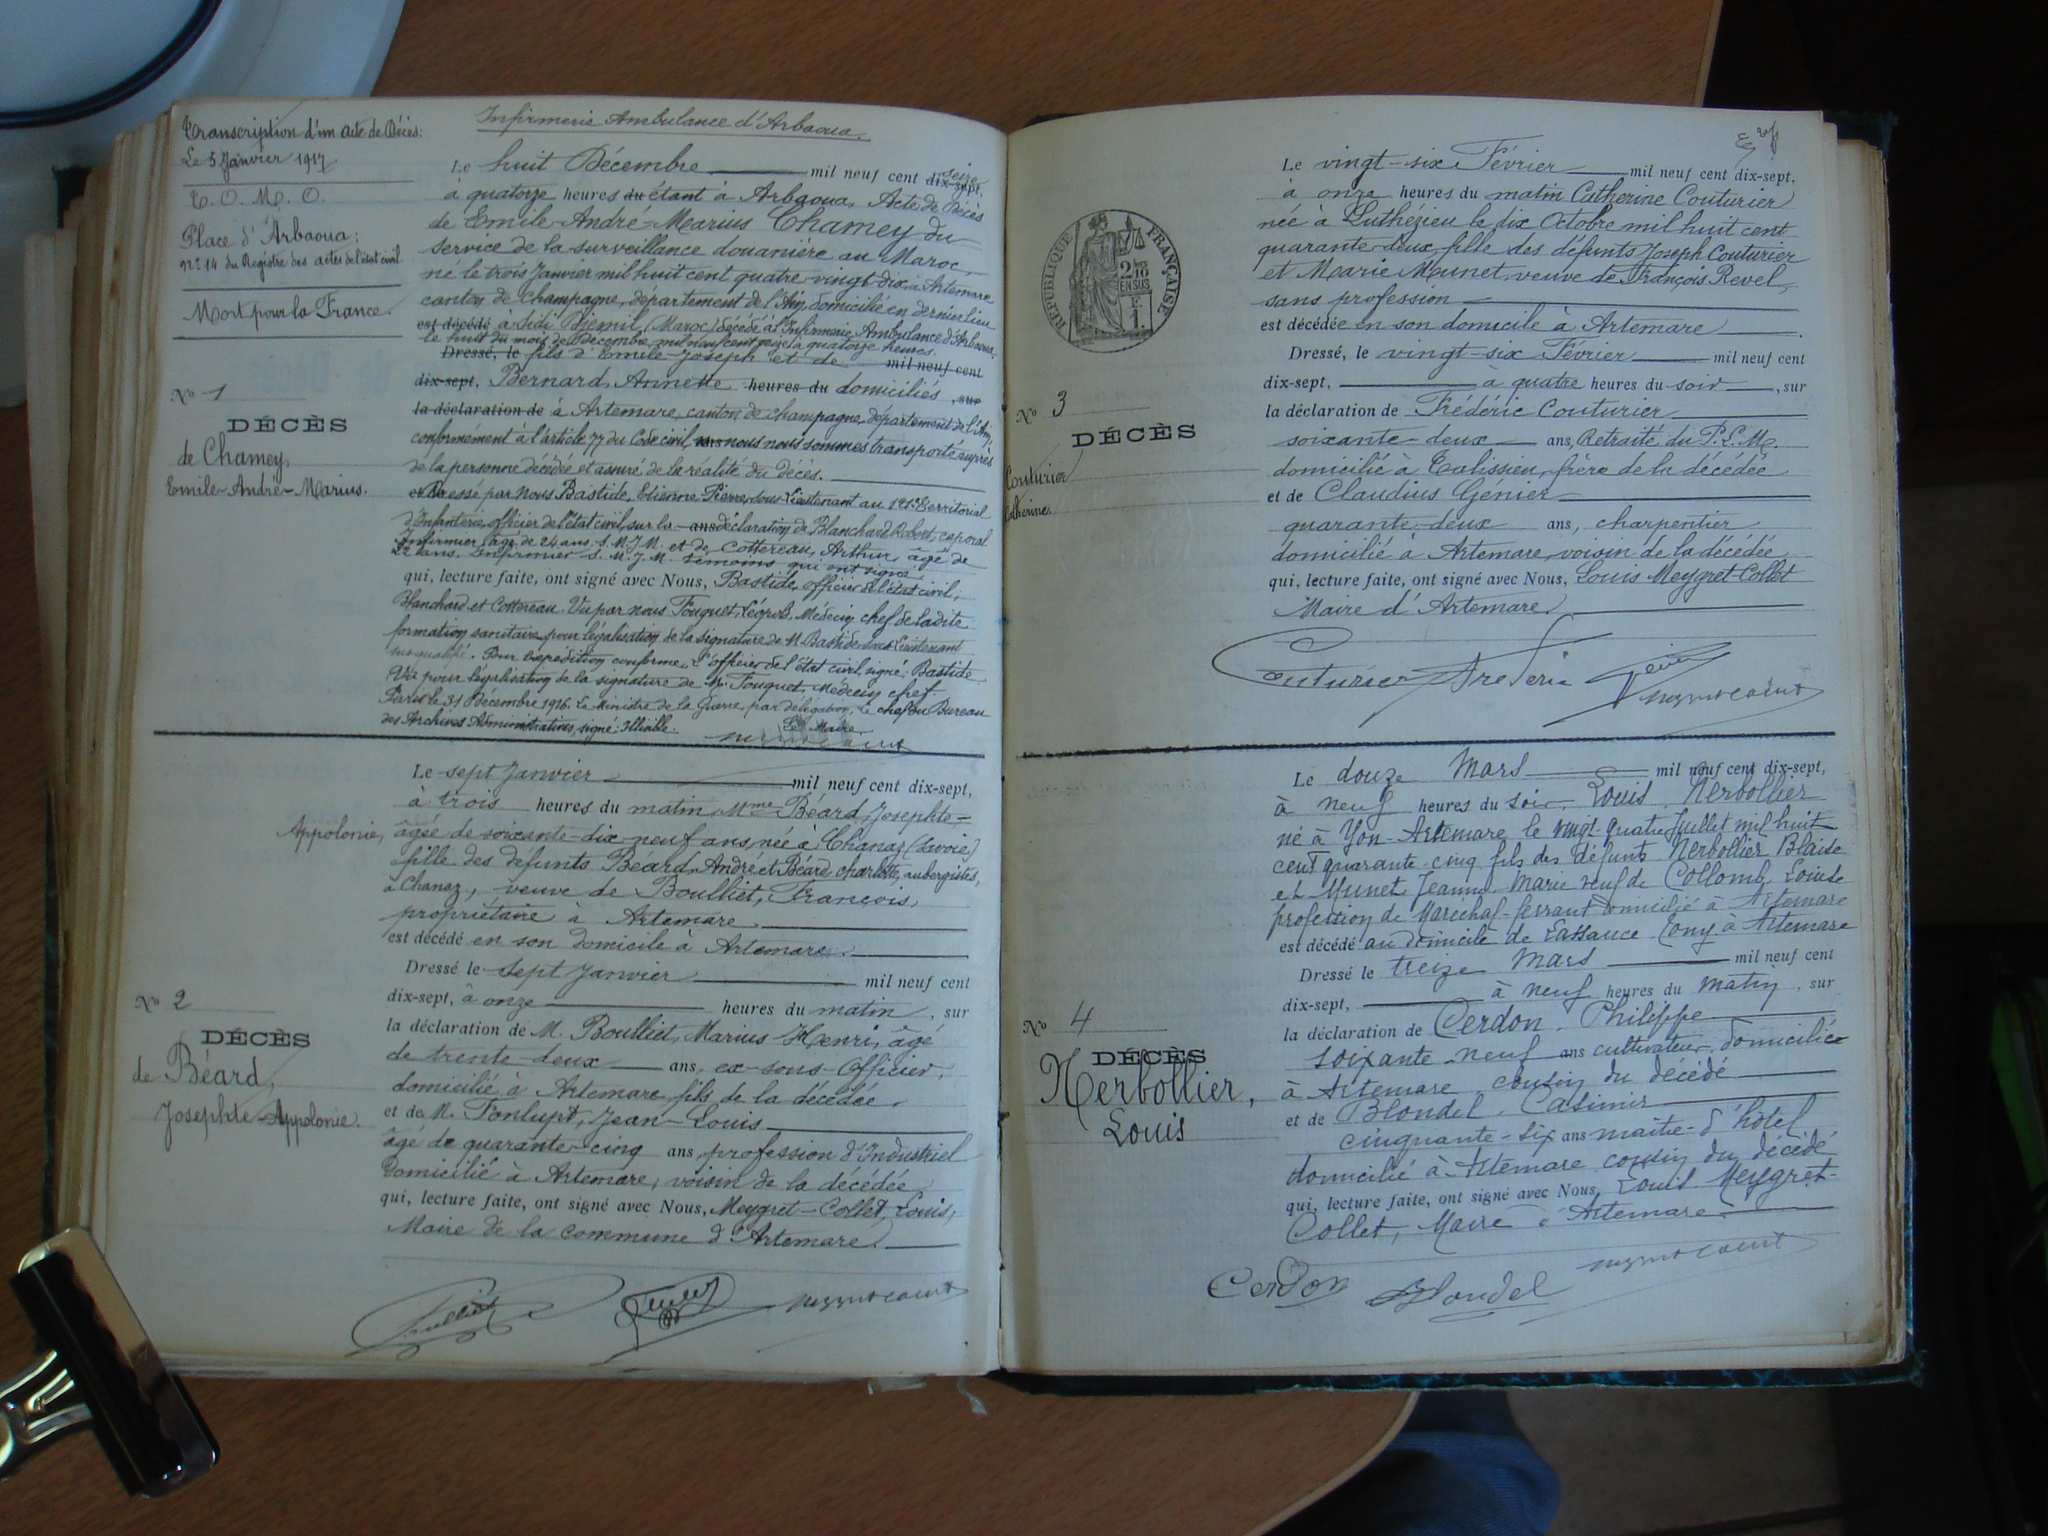 Transcription d'un acte de Décès:
Le 5 Janvier 1917
T. O. M. O.
Place d'Arbaoua:
N° 14 du Registre des actes de l'état civil
Mort pour la France.
N° 1
DÉCÈS
de Chamey,
Emile-André-Marius.
Infirmerie Ambulance d'Arbaoua.
Le huit Décembre mil neuf cent dix-sept, seize
à quatorze heures du étant à Arbaoua, Acte de Décès
de Emile-André-Marius Chamey du
service de la surveillance douanière au Maroc,
né le trois Janvier mil huit cent quatre-vingt-dix à Artemare
canton de Champagne, département de l'Ain, domicilié en dernier lieu
est décédé à Sidi Djemil, (Maroc) décédé à l'Infirmerie Ambulance d'Arbaoua,
le huit du mois de Décembre mil neuf cent seize à quatorze heures.
Dressé, le fils d'Emile-Joseph et de mil neuf cent
dix-sept, Bernard, Annette heures du domiciliés, sur
la déclaration de à Artemare, canton de Champagne, département de l'Ain,
conformément à l'article 77 du Code civil, nous nous sommes transporté auprès
de la personne décédée et assuré de la réalité du décès.
et de Dressé par Nous Bastide, Etienne-Pierre, sous-Lieutenant au Territorial
d'Infanterie, officier de l'état civil, sur la ans déclaration de Blanchard Robert, caporal
Infirmier, âgé de 24 ans S. M. I. M. et de Cottereau, Arthur, âgé de
22 ans. Infirmier S. M. I. M. témoins qui ont signé
qui, lecture faite, ont signé avec Nous, Bastide, officier de l'état civil,
Blanchard et Cottereau. Vu par nous Fouquet, Léopold, Médecin chef de ladite
formation sanitaire pour légalisation de la signature de M. Bastide sous-Lieutenant
susqualifié. Pour expédition conforme, L'officier de l'état civil, signé: Bastide
Vu pour légalisation de la signature de M. Fouquet, Médecin chef
Paris le 31 Décembre 1916. Le Ministre de la Guerre, par délégation, le chef du Bureau
des Archives Administratives, signé: Illisible.
Le Maire
N° 2
DÉCÈS
de Béard,
Josephte-Appolonie.
Le sept Janvier mil neuf cent dix-sept,
à trois heures du matin, Mme Béard, Josephte-
Appolonie, âgée de soixante-dix neuf ans, née à Chanaz (Savoie)
fille des défunts Béard, André et Béard Charlotte, aubergistes,
à Chanaz, veuve de Boulliet, François,
propriétaire à Artemare
est décédé en son domicile à Artemare.
Dressé le sept Janvier mil neuf cent
dix-sept, à onze heures du matin, sur
la déclaration de M. Boulliet, Marius-Henri, âgé
de trente-deux ans, ex-sous-Officier,
domicilié à Artemare, fils de la décédée.
et de M. Fonlupt, Jean-Louis
âgé de quarante-cinq ans, profession d'Industriel
Domicilié à Artemare, voisin de la décédée,
qui, lecture faite, ont signé avec Nous, Meygret-Collet, Louis,
Maire de la commune d'Artemare.
RÉPUBLIQUE FRANÇAISE
2/10
EN SUS
N° 3
DÉCÈS
Couturier
Catherine
Le vingt-six Février mil neuf cent dix-sept,
à onze heures du matin Catherine Couturier
née à Luthézieu le dix Octobre mil huit cent
quarante-deux, fille des défunts Joseph Couturier
et Marie Munet, veuve de François Revel,
sans profession
est décédée en son domicile à Artemare
Dressé, le vingt-six Février mil neuf cent
dix-sept, à quatre heures du soir, sur
la déclaration de Frédéric Couturier
soixante-deux ans, Retraité du P.L.M.
domicilié à Talissieu, frère de la décédée
et de Claudius Génier
quarante-deux ans, charpentier
domicilié à Artemare, voisin de la décédée
qui, lecture faite, ont signé avec Nous, Louis Meygret-Collet
Maire d'Artemare.
Couturier Frederic
N° 4
DÉCÈS
Nerbollier,
Louis
Le douze Mars mil neuf cent dix-sept,
à neuf heures du soir, Louis Nerbollier
né à Yon-Artemare le vingt-quatre Juillet mil huit
cent quarante-cinq fils des défunts Nerbollier Blaise
et Munet Jeanne Marie veuf de Collomb Louise
profession de Maréchal-ferrant domicilié à Artemare
est décédé au domicile de à Artemare
Dressé le treize Mars mil neuf cent
dix-sept, à neuf heures du matin, sur
la déclaration de Cerdon Philippe
soixante-neuf ans cultivateur, domicilié
à Artemare cousin du décédé
et de Blondel, Casimir
cinquante-six ans maître d'hôtel
domicilié à Artemare cousin du décédé
qui, lecture faite, ont signé avec Nous, Louis Meygret-
Collet, Maire d'Artemare
Cerdon Blondel